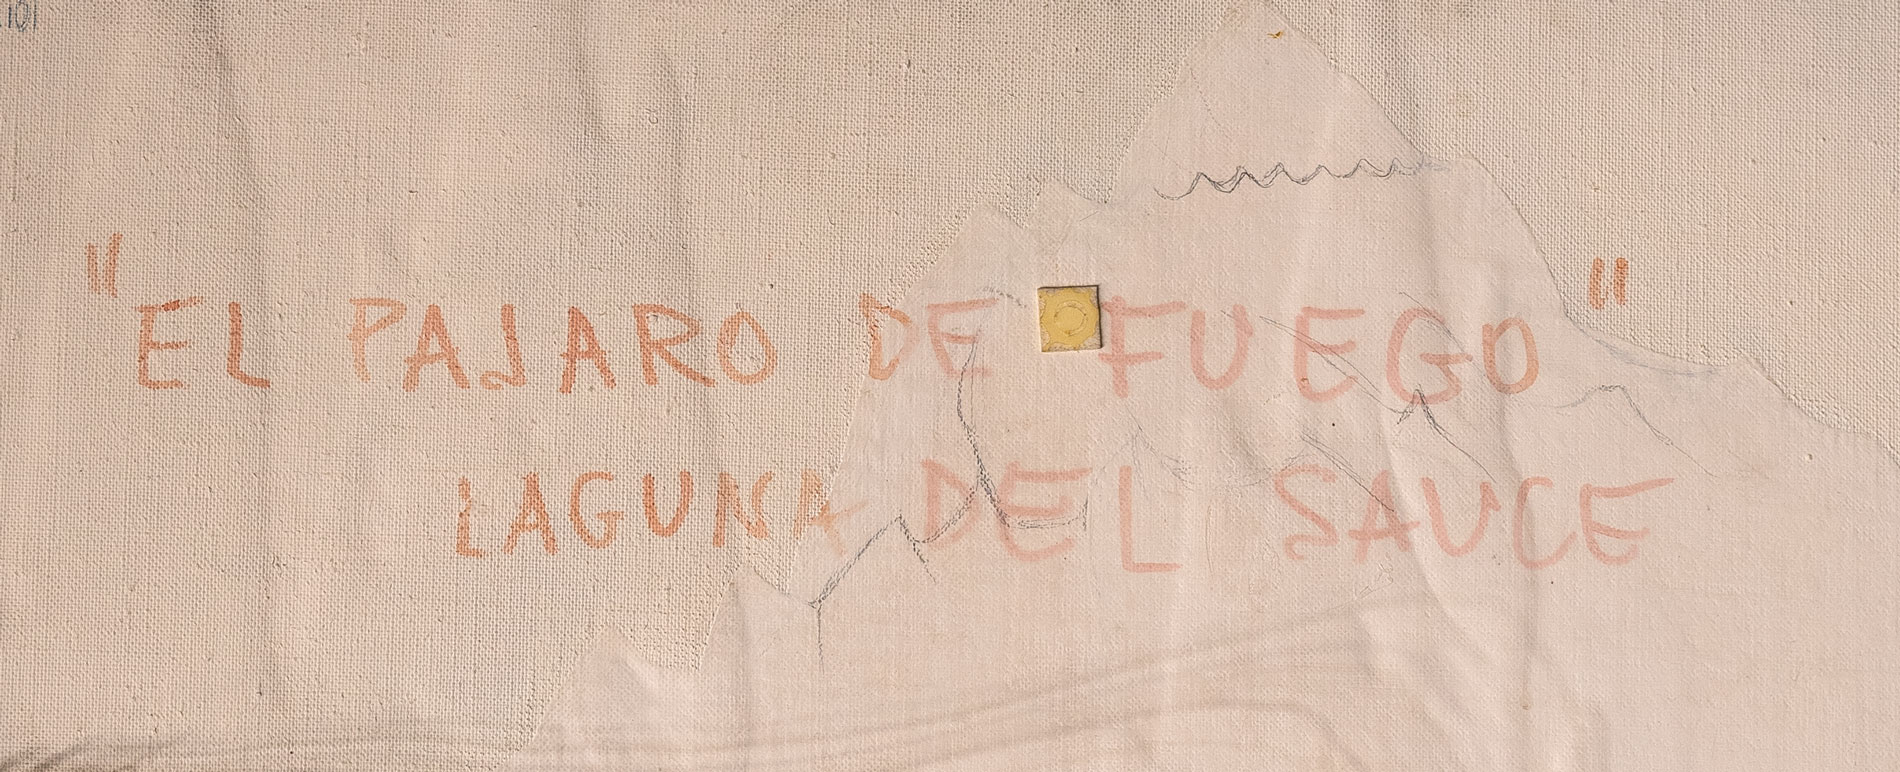 101
"EL PAJARO DE FUEGO"
LAGUNA DEL SAUCE